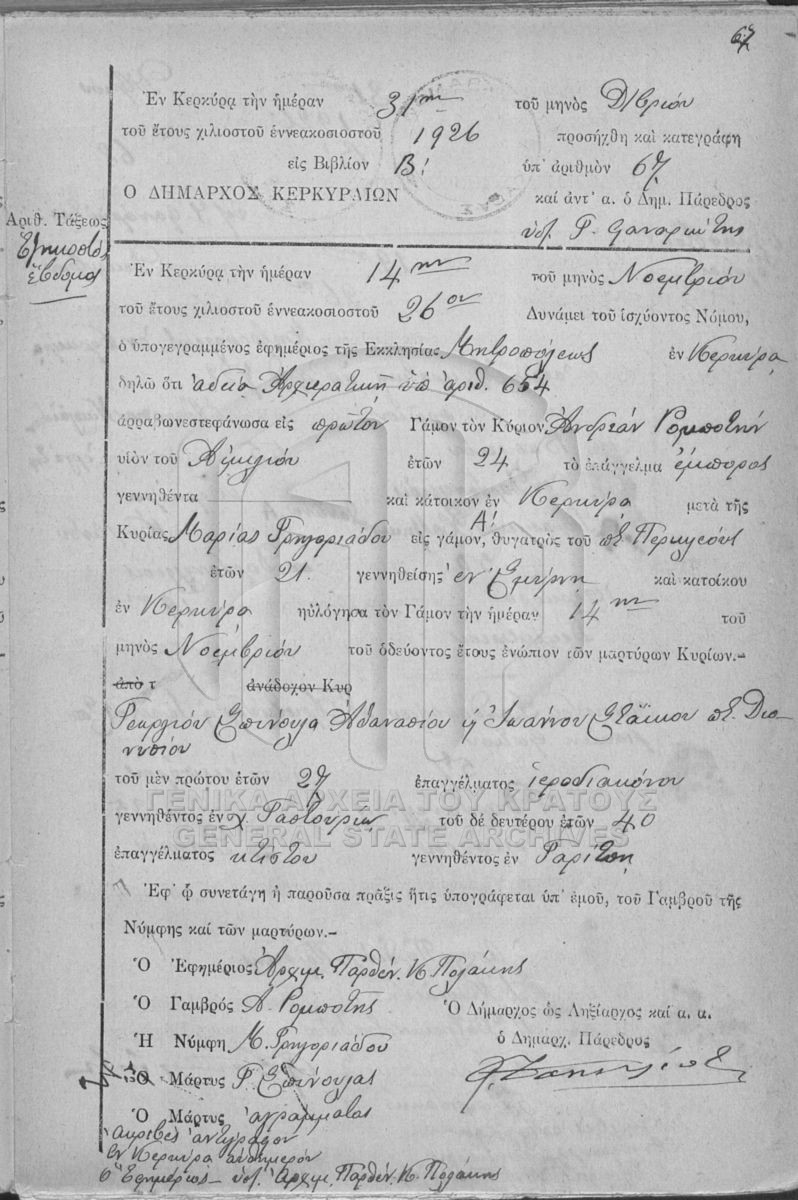 67
Ἐν Κερκύρᾳ τὴν ἡμέραν 31ην τοῦ μηνὸς Δβρίου
τοῦ ἔτους χιλιοστοῦ ἐννεακοσιοστοῦ 1926 προσήχθη καὶ κατεγράφη
εἰς Βιβλίον Β! ὑπ' ἀριθμὸν 67
Ὁ ΔΗΜΑΡΧΟΣ ΚΕΡΚΥΡΑΙΩΝ καὶ ἀντ' α. ὁ Δημ. Πάρεδρος
Ἀριθ. Τάξεως
Ἑξηκοστὸς
ἕβδομος
Ἐν Κερκύρᾳ τὴν ἡμέραν 14ην τοῦ μηνὸς Νοεμβρίου
τοῦ ἔτους χιλιοστοῦ ἐννεακοσιοστοῦ 26ου Δυνάμει τοῦ ἰσχύοντος Νόμου,
ὁ ὑπογεγραμμένος ἐφημέριος τῆς Εκκλησίας Μητροπόλεως ἐν Κερκύρᾳ
δηλῶ ὅτι ἀδείᾳ Ἀρχιερατικῇ ὑπ' ἀριθ. 654
ἀρραβωνεστεφάνωσα εἰς πρῶτον Γάμον τὸν Κύριον Ἀνδρέαν Ρομποτήν
υἱὸν τοῦ Αἰμιλίου ἐτῶν 24 τὸ ἐπάγγελμα ἔμπορος
γεννηθέντα καὶ κάτοικον ἐν Κερκύρᾳ μετὰ τῆς
Κυρίας Μαρίας Γρηγοριάδου εἰς γάμον, Α! θυγατρὸς τοῦ πτ. Περικλέους
ἐτῶν 21. γεννηθείσης ἐν Σμύρνῃ καὶ κατοίκου
ἐν Κερκύρᾳ ηὐλόγησα τὸν Γάμον τὴν ἡμέραν 14ην τοῦ
μηνὸς Νοεμβρίου τοῦ ὁδεύοντος ἔτους ἐνώπιον τῶν μαρτύρων Κυρίων.-
ἀπὸ τ ἀνάδοχον Κυρ
Γεωργίου Σπίνουλα Ἀθανασίου ἢ Ἰωάννου Στάϊκου πτ. Διο-
νυσίου
τοῦ μὲν πρώτου ἐτῶν 27 ἐπαγγέλματος ἱεροδιακόνου
ΓΕΝΙΚΑ ΑΡΧΕΙΑ ΤΟΥ ΚΡΑΤΟΥΣ
γεννηθέντος ἐν χ. Γαστουρίῳ τοῦ δέ δευτέρου ἐτῶν 40
GENERAL STATE ARCHIVES
ἐπαγγέλματος κτίστου γεννηθέντος ἐν Γαρίτσῃ
Ἐφ' ᾧ συνετάγη ἡ παροῦσα πρᾶξις ἥτις ὑπογράφεται ὑπ' ἐμοῦ, τοῦ Γαμβροῦ τῆς
Νύμφης καί τῶν μαρτύρων.-
Ὁ Ἐφημέριος Ἀρχιμ. Παρθέν. Κ. Πολάκης
Ὁ Γαμβρός Α. Ρομποτῆς Ὁ Δήμαρχος ὡς Ληξίαρχος καί α. α.
Ἡ Νύμφη Μ. Γρηγοριάδου ὁ Δημαρχ. Πάρεδρος
Ὁ Μάρτυς Γ. Σπίνουλας
Ὁ Μάρτυς ἀγράμματος
Ἀκριβὲς ἀντίγραφον
ἐν Κερκύρᾳ αὐθημερόν
ὁ Ἐφημέριος - ὑπ. Ἀρχιμ. Παρθέν. Κ. Πολάκης